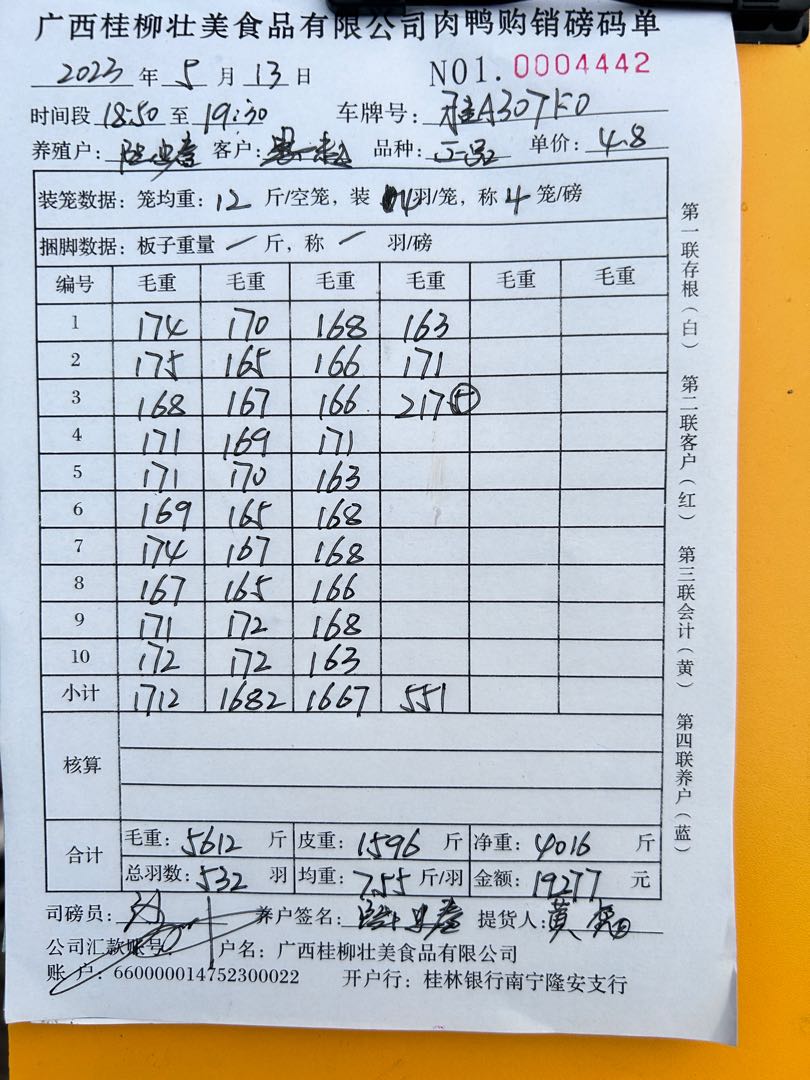 广西桂柳壮美食品有限公司肉鸭购销磅码单
2023 年 5 月 13 日 NO1. 0004442
时间段 18:50 至 19:30 车牌号: 桂A30TF0
养殖户: 客户: 品种: 正品 单价: 4.8
装笼数据: 笼均重: 12 斤/空笼, 装 4 羽/笼, 称 4 笼/磅
捆脚数据: 板子重量 / 斤, 称 / 羽/磅
编号 毛重 毛重 毛重 毛重 毛重 毛重
1 174 170 168 163
2 175 165 166 171
3 168 167 166 217 ⑤
4 171 169 171
5 171 170 163
6 169 165 168
7 174 167 168
8 167 165 166
9 171 172 168
10 172 172 163
小计 1712 1682 1667 551
核算
合计 毛重: 5612 斤 皮重: 1596 斤 净重: 4016 斤
总羽数: 532 羽 均重: 7.55 斤/羽 金额: 19277 元
司磅员: 养户签名: 提货人: 黄
公司汇款账号: 户名: 广西桂柳壮美食品有限公司
账户: 660000014752300022 开户行: 桂林银行南宁隆安支行
第一联存根(白) 第二联客户(红) 第三联会计(黄) 第四联养户(蓝)